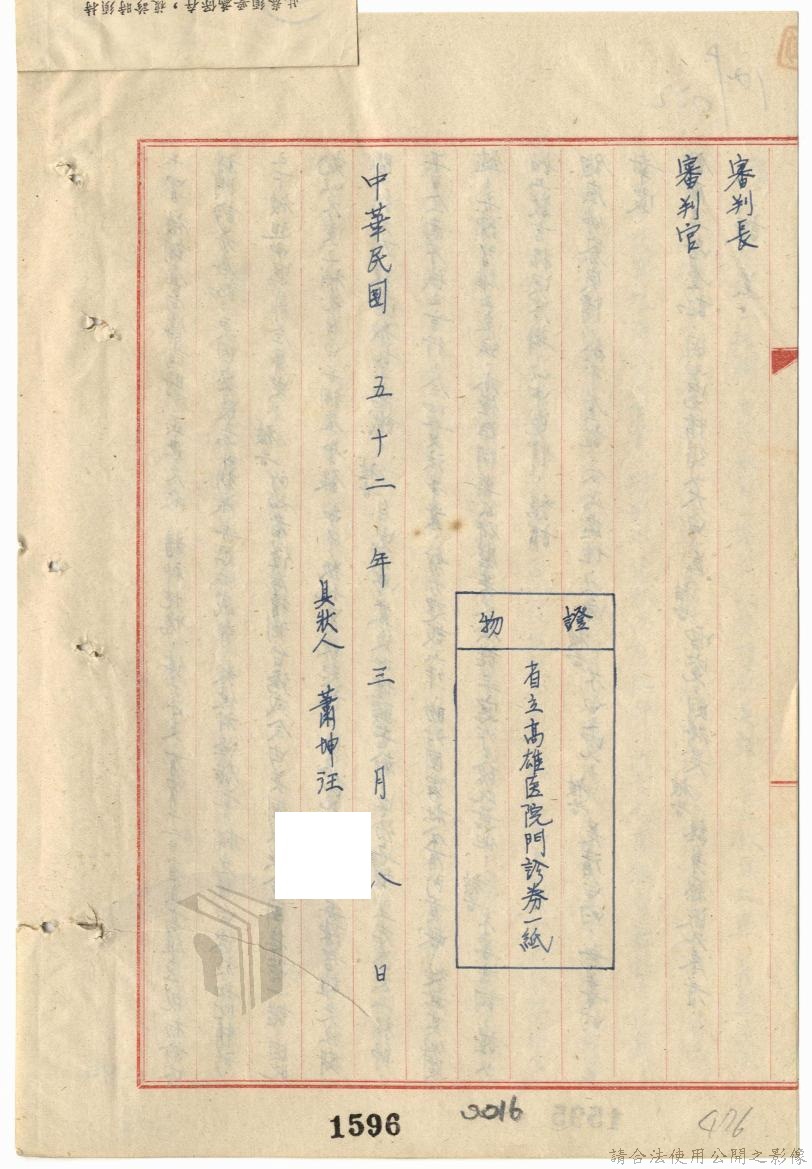 審判長
審判官
證物
省立高雄医院門診券一紙
中華民国五十二年三月八日
具狀人 蕭坤汪
1596
0016
426
請合法使用公開之影像